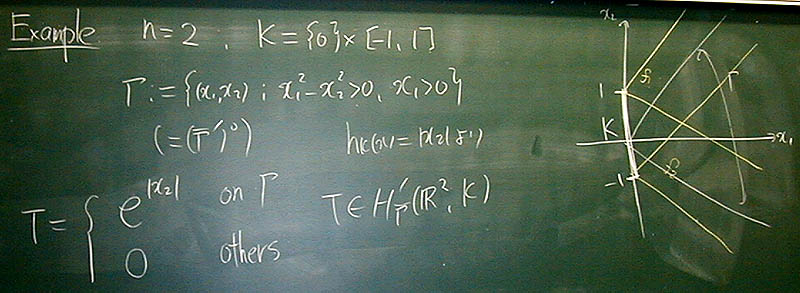 Example n=2, K={0}×[-1,1]
Γ:={(x₁,x₂) ; x₁²-x₂²>0, x₁>0}
(=(Γ')°) h_K(x)=|x₂| より
T={ e^{|x₂|} on Γ
0 others
T∈H'_Γ(ℝ², K)
x₂
1
K
-1
x₁
Γ
f₁
f₂